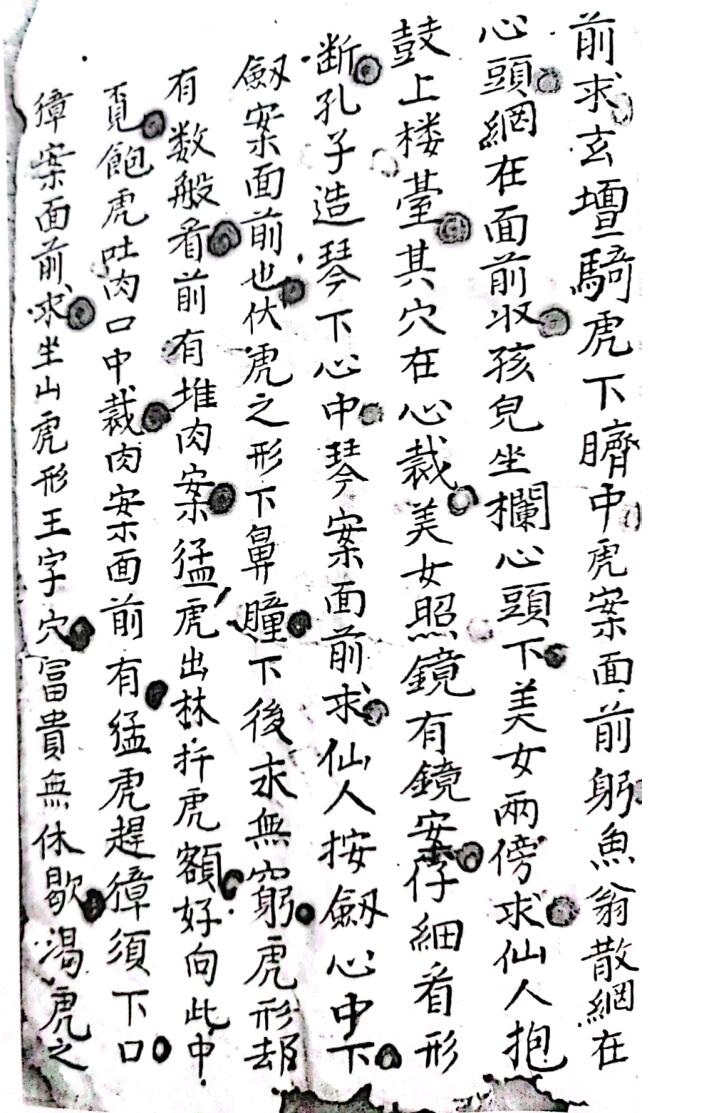 前求玄壇騎虎下臍中虎案面前躬魚翁散網在
心頭網在面前收孩兒坐欄心頭下美女兩傍求仙人抱
鼓上楼臺其穴在心裁美女照鏡有鏡案仔細看形
断孔子造琴下心中琴案面前求仙人按劔心中下
劔案面前也伏虎之形下鼻瞳下後求無窮虎形却
有数般看前有堆肉案猛虎出林扦虎額好向此中
覔飽虎吐肉口中裁肉案面前有猛虎趕獐須下口
獐案面前求坐山虎形王字穴冨貴無休歇渴虎之